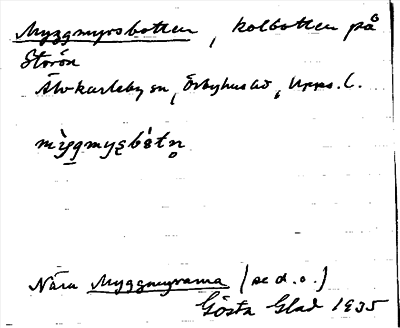 Myggmyrsbotten, kolbotten på
Storön
Älvkarleby sn, Örbyhus hd, Upps. l.
Nära Myggmyrarna (se d. o.)
Gösta Glad 1935